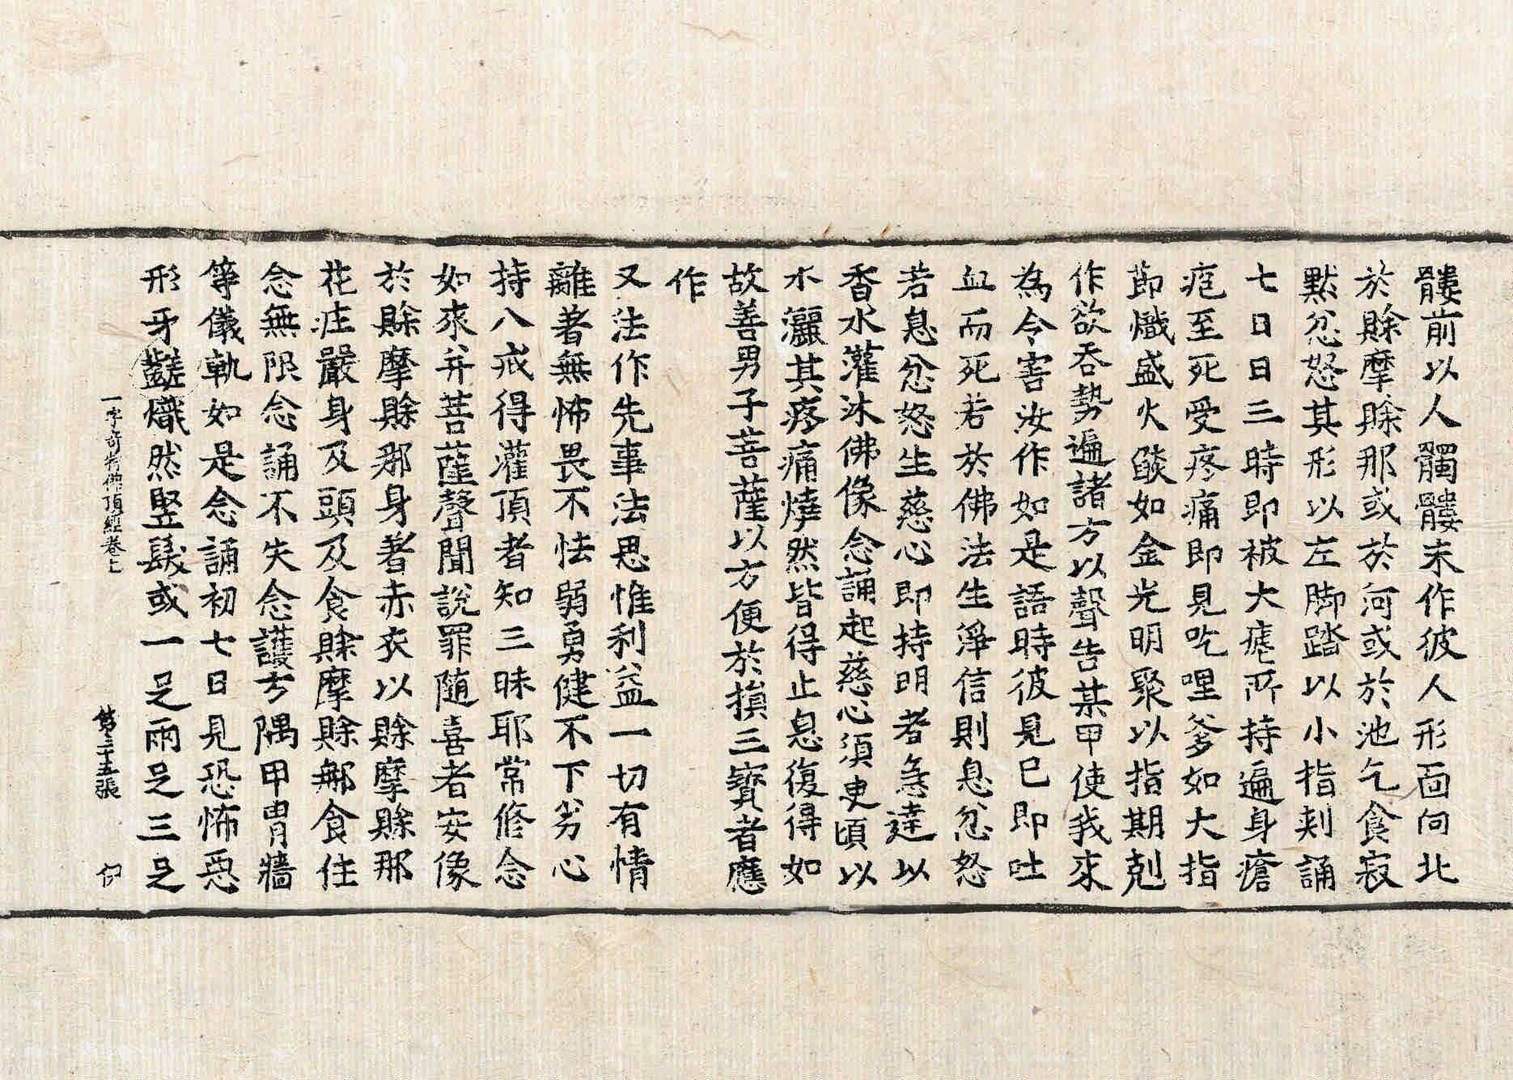 髏前以人髑髏末作彼人形面向北
於賖摩賖那或於河或於池乞食寂
黙忿怒其形以左脚踏以小指剌誦
七日日三時即被大瘧所持遍身瘡
疱至死受疼痛即見吃哩爹如大指
節熾盛火燄如金光明聚以指期剋
作欲吞勢遍諸方以聲告某甲使我來
為令害汝作如是語時彼見已即吐
血而死若於佛法生淨信則息忿怒
若息忿怒生慈心即持明者急達以
香水灌沐佛像念誦起慈心須臾頃以
水灑其疼痛燒然皆得止息復得如
故善男子菩薩以方便於損三寶者應
作
又法作先事法思惟利益一切有情
離著無怖畏不怯弱勇健不下劣心
持八戒得灌頂者知三昧耶常修念
如來并菩薩聲聞說罪隨喜者安像
於賖摩賖那身著赤衣以賖摩賖那
花庄嚴身及頭及食賖摩賖那食住
念無限念誦不失念護方隅甲冑牆
等儀軌如是念誦初七日見恐怖惡
形牙齼熾然竪髮或一足兩足三足
一字奇特佛頂經卷上 第三十五張 伊